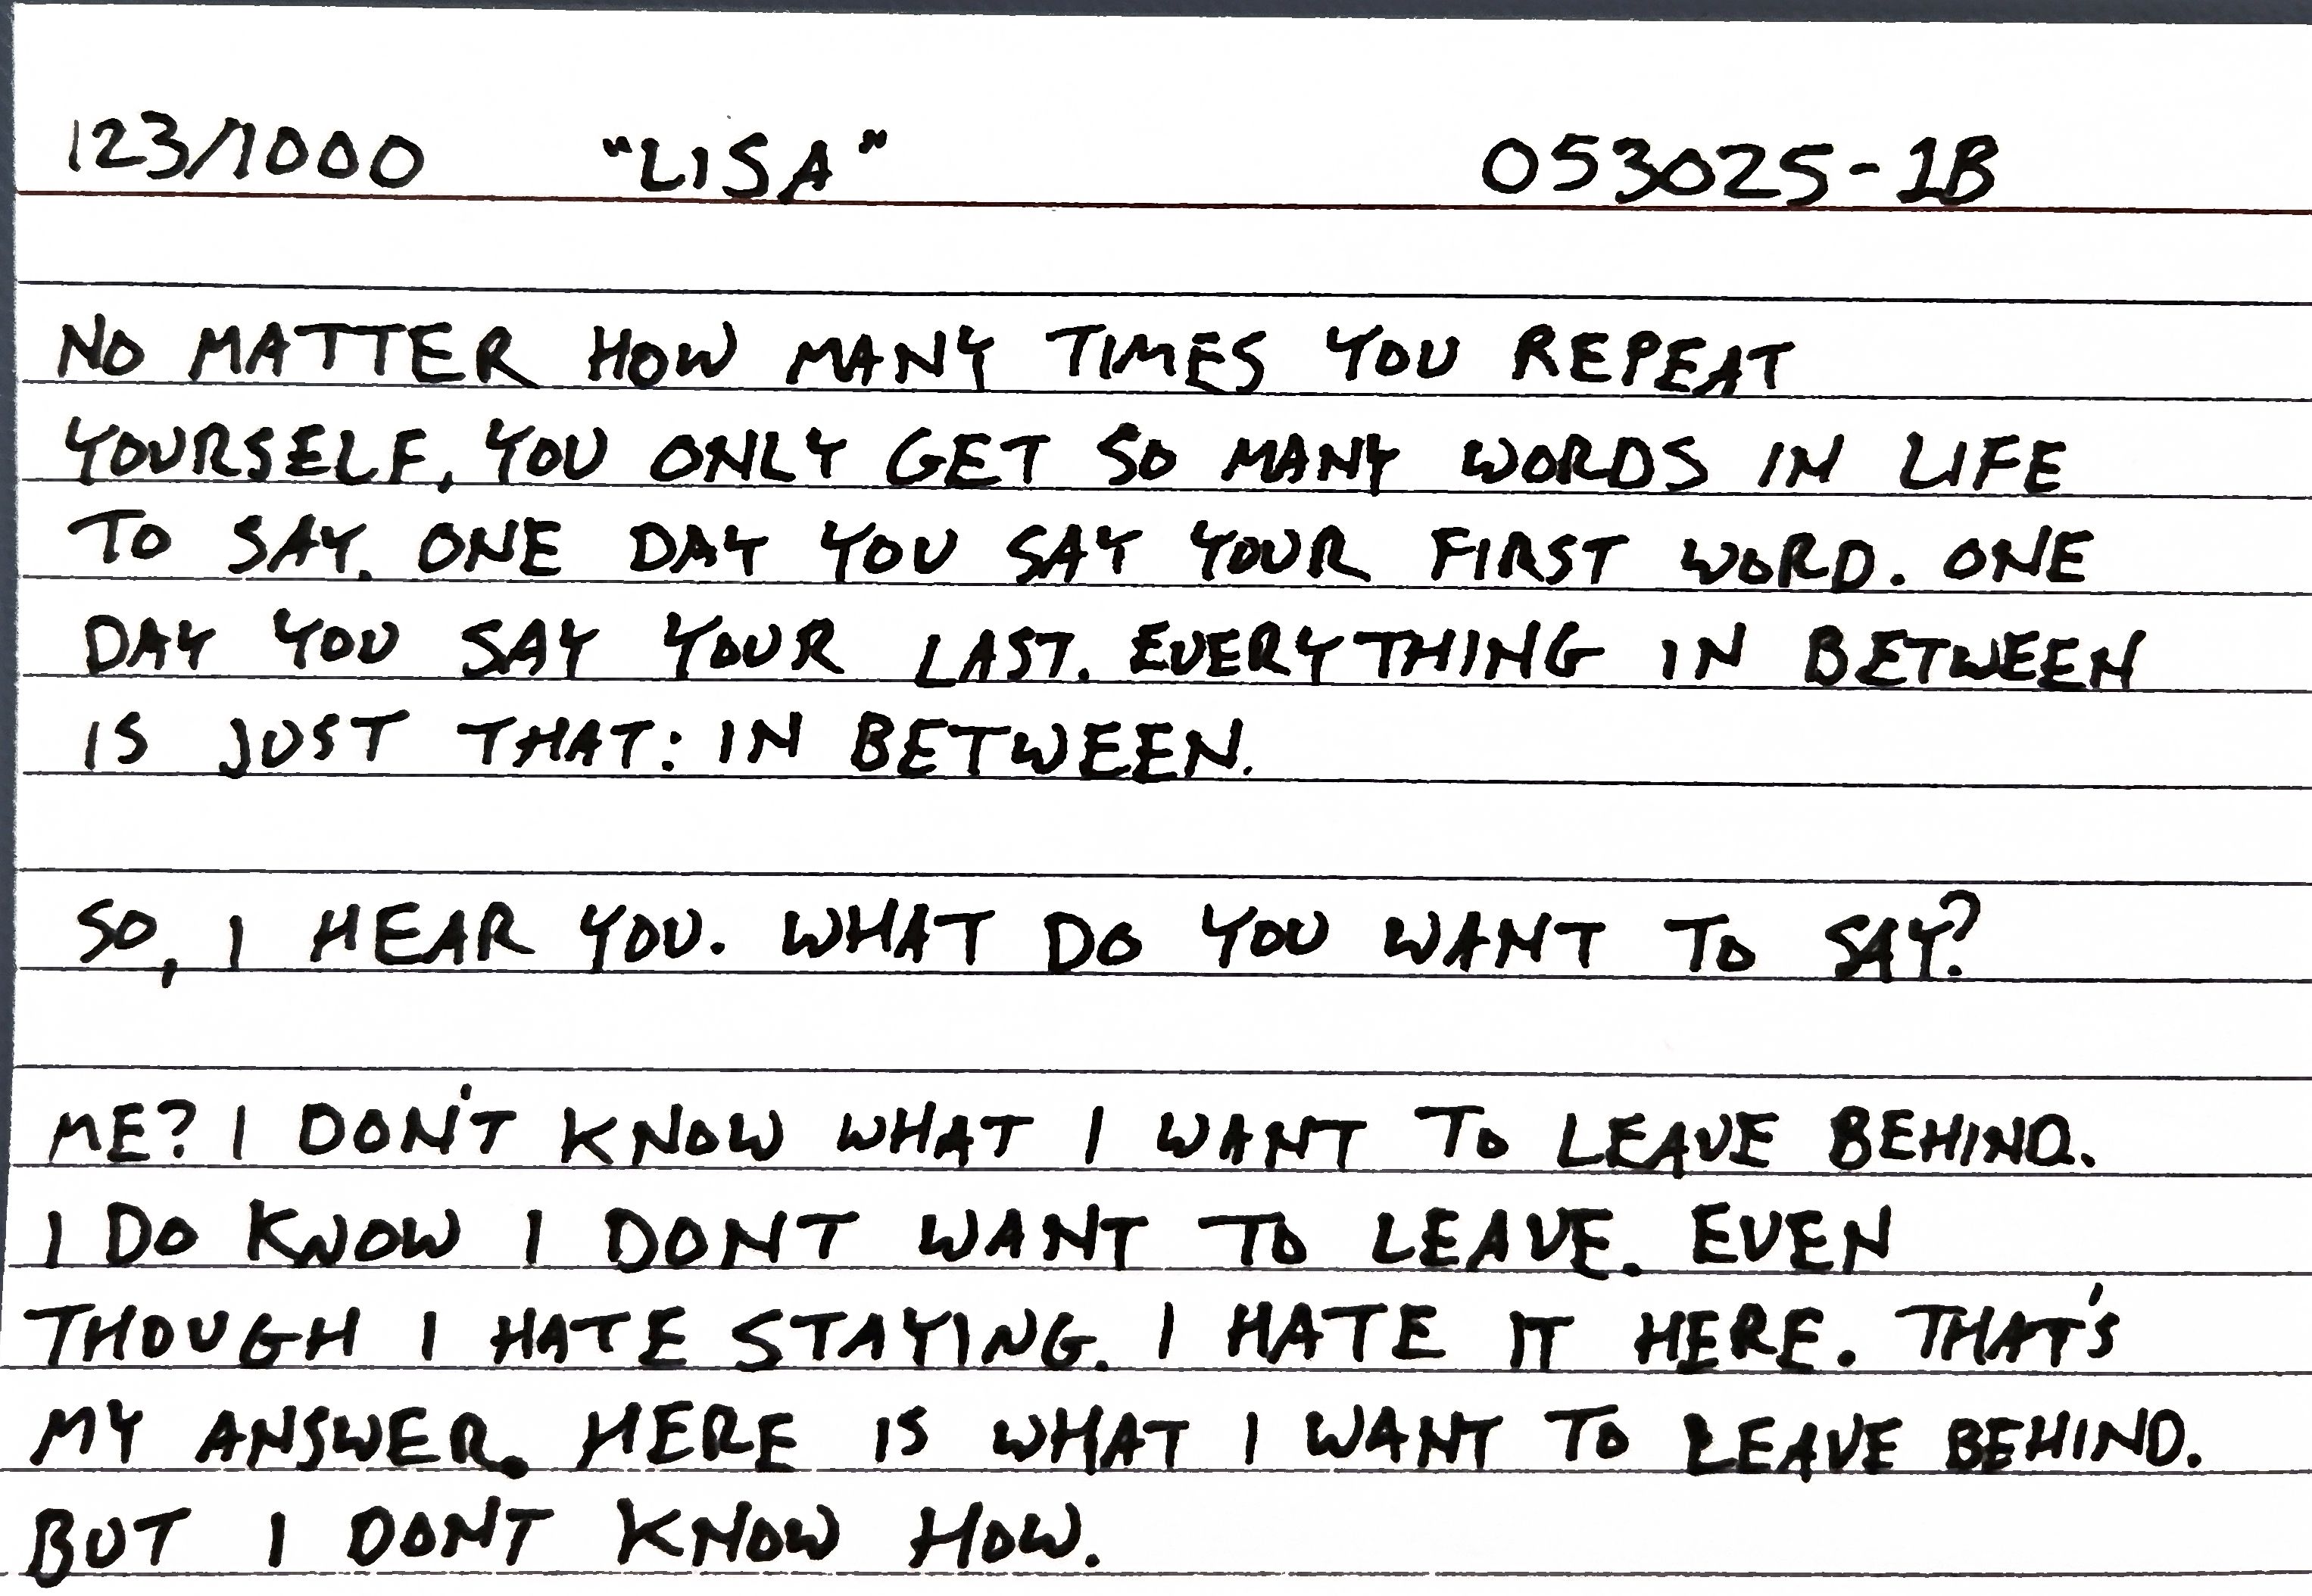 123/1000 "LISA" 053025-1B
NO MATTER HOW MANY TIMES YOU REPEAT
YOURSELF, YOU ONLY GET SO MANY WORDS IN LIFE
TO SAY. ONE DAY YOU SAY YOUR FIRST WORD. ONE
DAY YOU SAY YOUR LAST. EVERYTHING IN BETWEEN
IS JUST THAT: IN BETWEEN.
SO, I HEAR YOU. WHAT DO YOU WANT TO SAY?
ME? I DON'T KNOW WHAT I WANT TO LEAVE BEHIND.
I DO KNOW I DONT WANT TO LEAVE. EVEN
THOUGH I HATE STAYING. I HATE IT HERE. THAT'S
MY ANSWER. HERE IS WHAT I WANT TO LEAVE BEHIND.
BUT I DONT KNOW HOW.